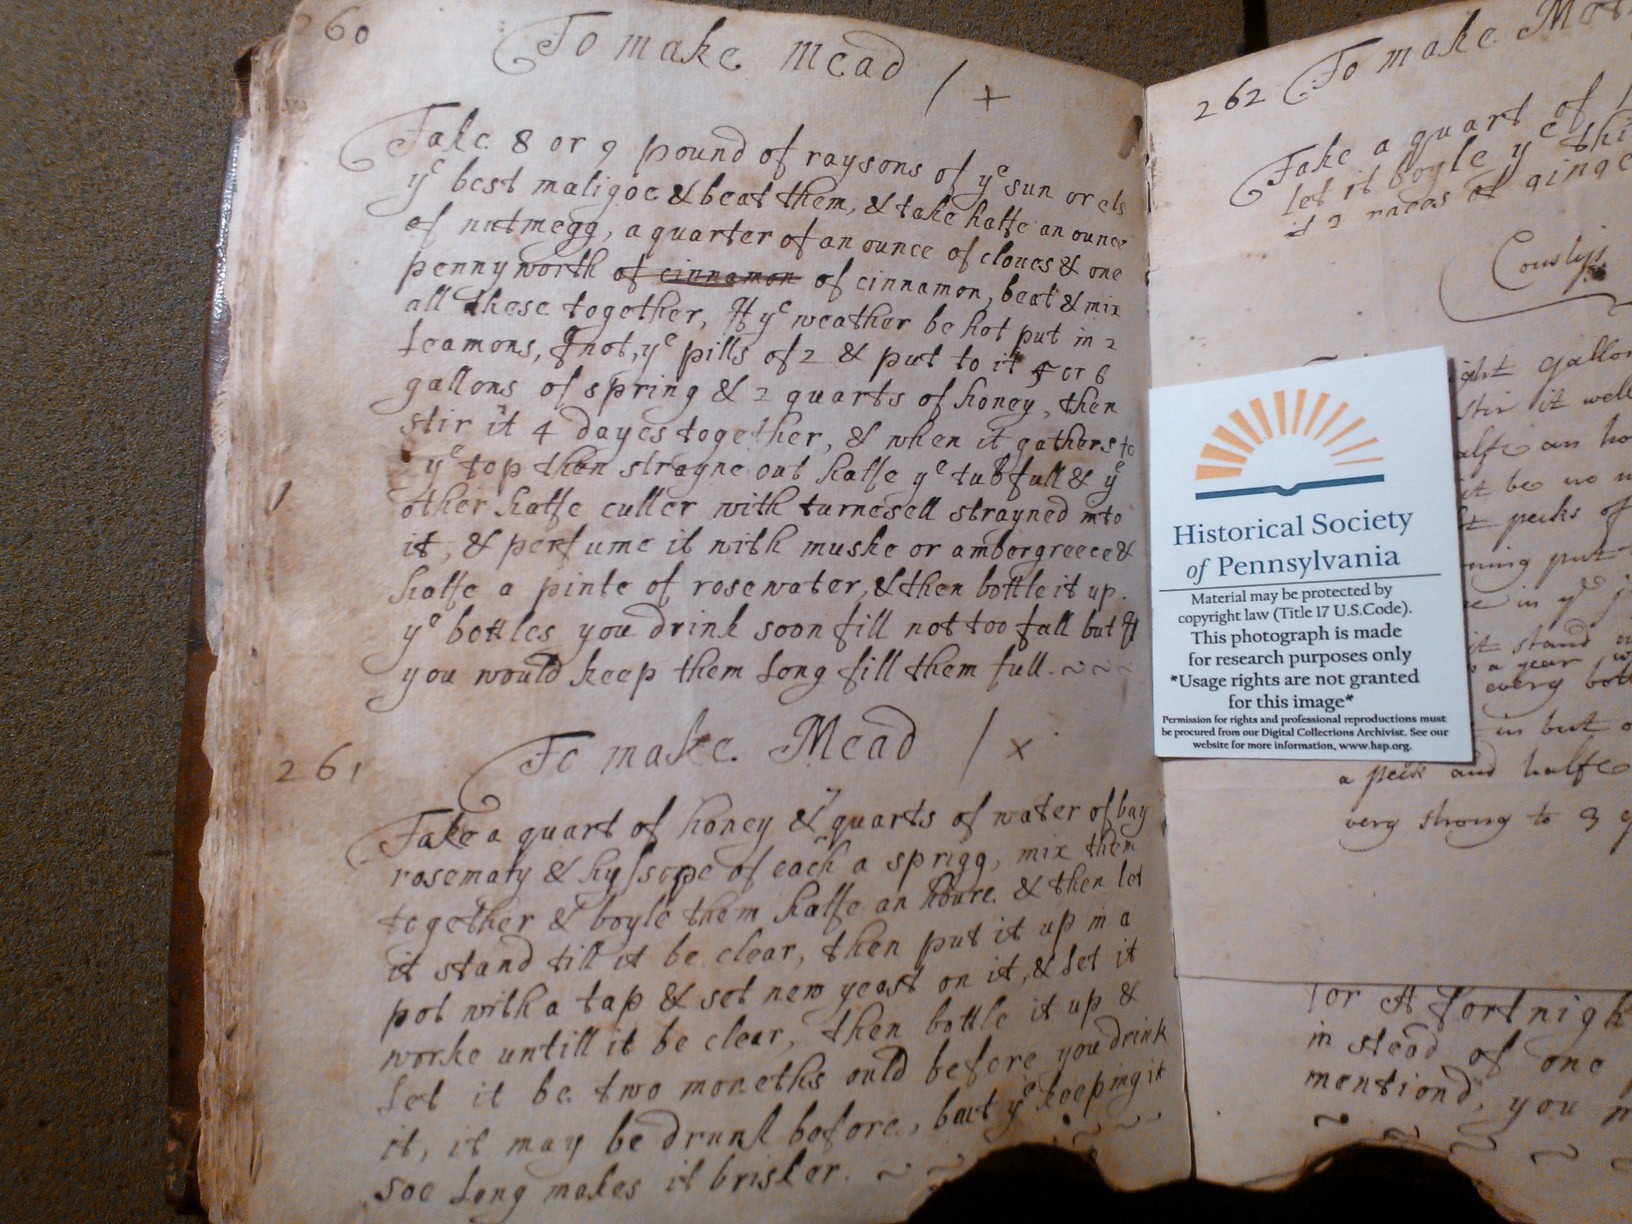 260 To make Mead / +
Take 8 or 9 pound of raysons of yͤ sun or els
yͤ best maligoe & beat them, & take halfe an ounce
of nutmegg, a quarter of an ounce of cloues & one
pennyworth of cinnamon of cinnamon, beat & mix
all these together, If yͤ weather be hot put in 2
Leamons, if not, yͤ pills of 2 & put to it 5 or 6
gallons of spring & 2 quarts of honey, then
stir it 4 dayes together, & when it gathers to
yͤ top then strayne out halfe yͤ tub full & yͤ
other halfe culler with turnesell strayned into
it, & perfume it with muske or ambergreece &
halfe a pinte of rosewater, & then bottle it up.
yͤ bottles you drink soon fill not too full but if
you would keep them Long fill them full. ~ ~ ~
261 To make Mead / x
Take a quart of honey & 7 quarts of water of bay
rosemary & hyssope of each a sprigg, mix them
together & boyle them halfe an houre. & then let
it stand till it be clear, then put it up in a
pot with a tap & set new yeast on it, & Let it
worke untill it be clear, then bottle it up &
Let it be two moneths ould before you drink
it, it may be drunk before, but yͤ keeping it
soe Long makes it brisker. ~ ~
262 To make
Take a quart of
let it boyle yͤ
races of ginge
Couslip
ght gallon
stir it well
alfe an ho
it be no m
pecks of
ning put
in yͤ
it stand
a year
every bott
in but
a peck and halfe
very strong to 3
for A fortnigh
in stead of one
mentiond, you m
~ ~ ~ ~ ~
Historical Society
of Pennsylvania
Material may be protected by
copyright law (Title 17 U.S.Code).
This photograph is made
for research purposes only
*Usage rights are not granted
for this image*
Permission for rights and professional reproductions must
be procured from our Digital Collections Archivist. See our
website for more information, www.hsp.org.